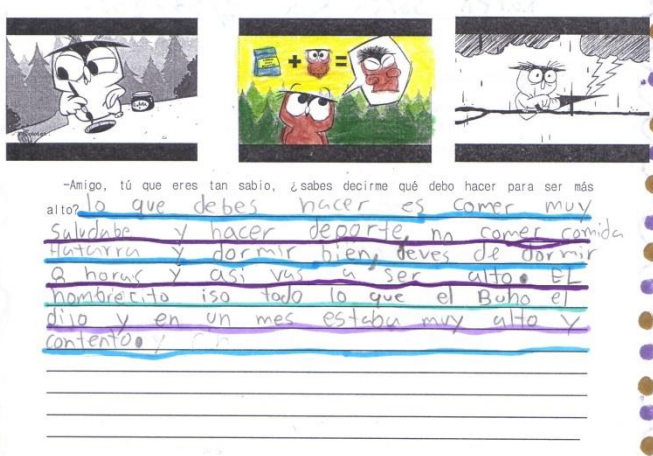 -Amigo, tú que eres tan sabio, ¿sabes decirme qué debo hacer para ser más
alto? lo que debes hacer es comer muy
saludabe y hacer deporte, no comer comida
Hatarra y dormir bien, deves de dormir
8 horas y asi vas a ser alto. EL
hombrecito iso todo lo que el Buho el
dijo y en un mes estaba muy alto y
contento. y